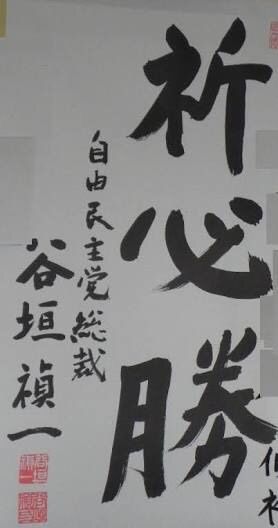 祈必勝
自由民主党総裁
谷垣禎一